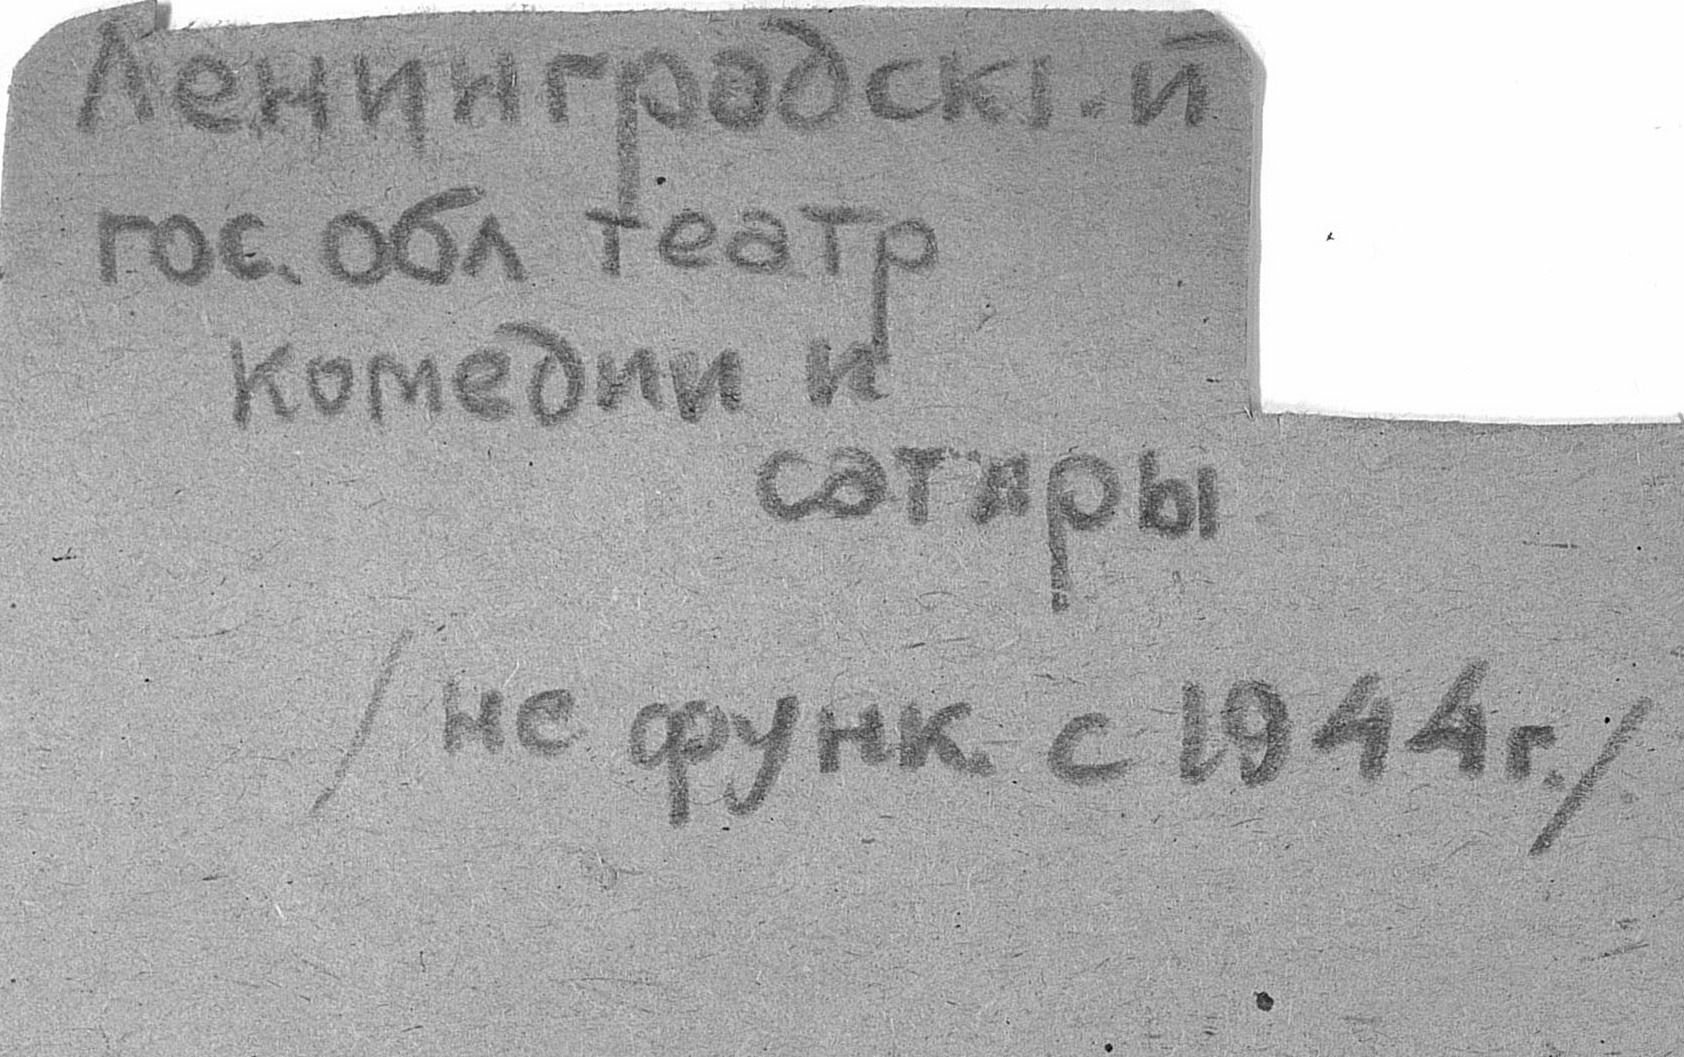 Ленинградский
гос. обл театр
комедии и
сатиры
/не функ. с 1944г./